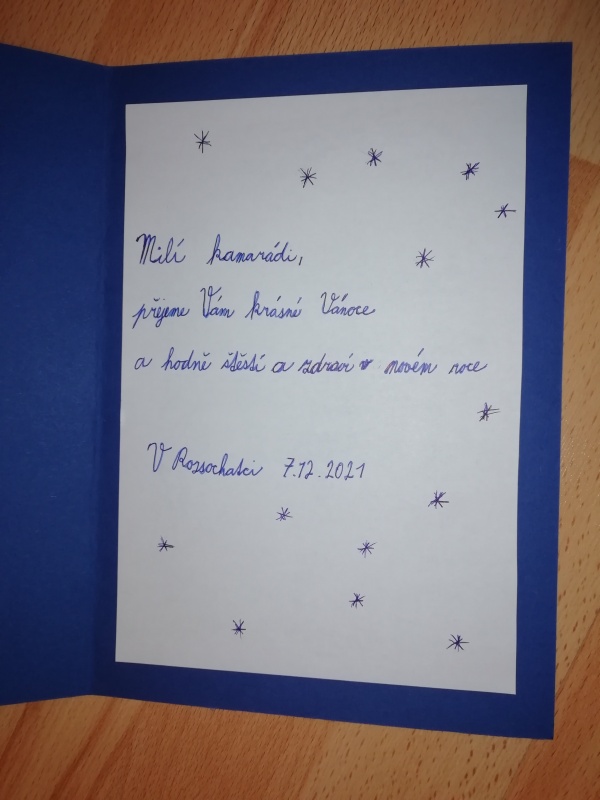 Milí kamarádi,
přejeme Vám krásné Vánoce
a hodně štěstí a zdraví v novém roce
V Rozsochatci 7.12.2021